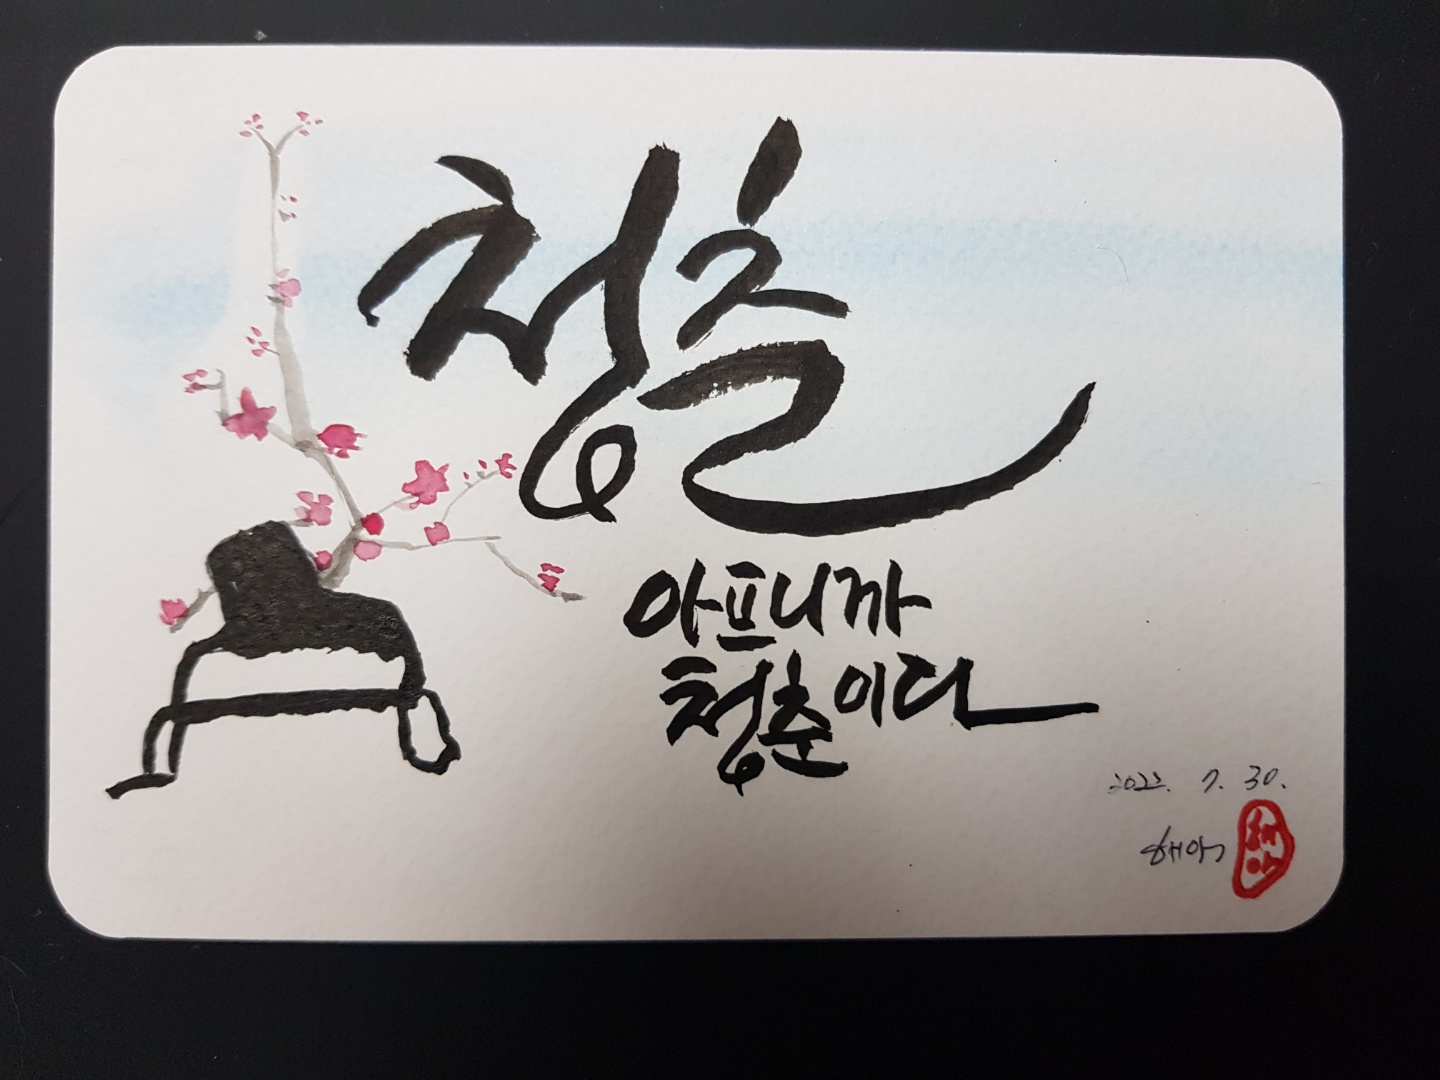 청춘
아프니까
청춘이다
2022. 7. 30.